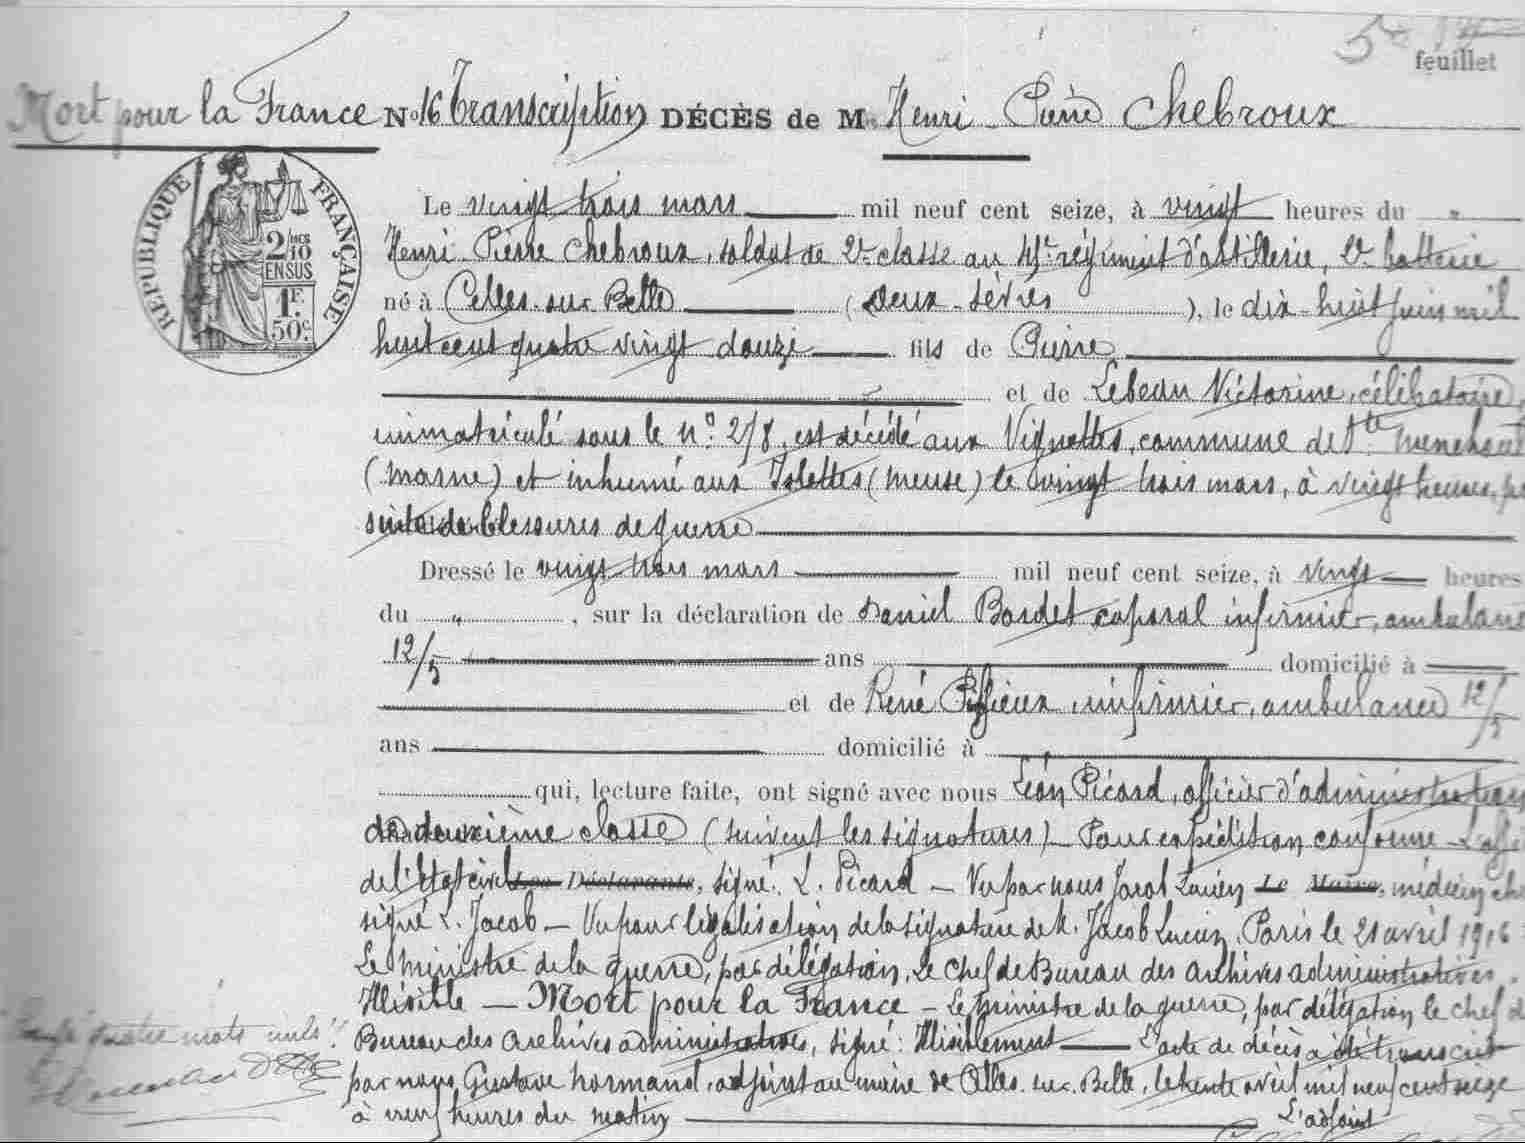 5e
feuillet
Mort pour la France No 16 Transcription DÉCÈS de M Henri Pierre Chebroux
RÉPUBLIQUE FRANÇAISE
2/10 EN SUS
1F. 50c.
Le vingt trois mars mil neuf cent seize, à vingt heures du "
Henri Pierre Chebroux, soldat de 2e classe au régiment d'artillerie, 2e batterie
né à Celles-sur-Belle (Deux-Sèvres), le dix-huit juin mil
huit cent quatre vingt douze fils de Pierre
et de Lebeau Victorine, célibataire,
immatriculé sous le n° 218, est décédé aux Vignettes, commune de Ste Menehould
(Marne) et inhumé aux Islettes (Meuse) le vingt trois mars, à vingt heures,
suite de blessures de guerre
Dressé le vingt trois mars mil neuf cent seize, à vingt heures
du " , sur la déclaration de Daniel Bordet caporal infirmier, ambulance
12/5 ans domicilié à
et de René infirmier, ambulance 12/5
ans domicilié à
qui, lecture faite, ont signé avec nous Léon Picard, officier d'administration
de deuxième classe (suivent les signatures) - Pour expédition conforme - L'offi
de l'état civil Les Déclarants, signé: L. Picard - Vu par nous Jacob Lucien Le Maire, médecin che
signé L. Jacob - Vu pour légalisation de la signature de M. Jacob Lucien, Paris le 21 avril 1916
Le Ministre de la guerre, par délégation, Le chef de Bureau des archives administratives.
Illisible - Mort pour la France - Le Ministre de la guerre, par délégation le chef d
Bureau des Archives administratives, signé: Illisiblement L'acte de décès a été transcrit
par nous Gustave Normand, adjoint au maire de Celles-sur-Belle, le trente avril mil neuf cent seize
à neuf heures du matin
L'adjoint
quatre mots nuls